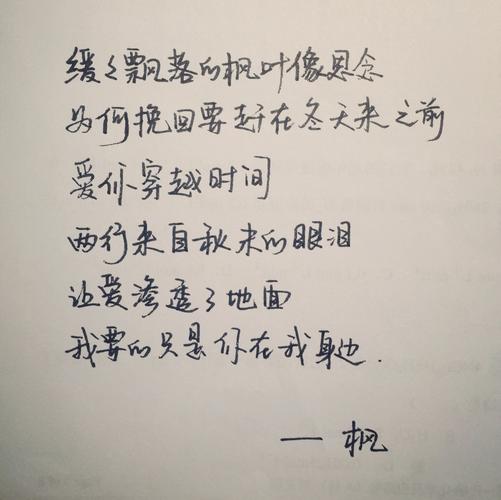 缓々飘落的枫叶像思念
为何挽回要赶在冬天来之前
爱你穿越时间
两行来自秋末的眼泪
让爱渗透了地面
我要的只是你在我身边.
— 枫